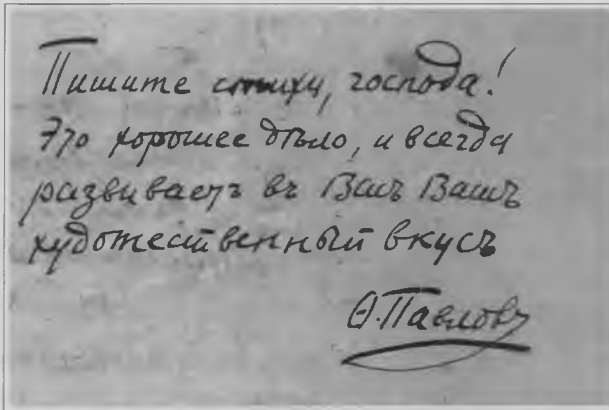 Пишите стихи, господа!
Это хорошее дѣло, и всегда
развиваетъ въ Васъ Вашъ
художественный вкусъ
Ѳ. Павловъ